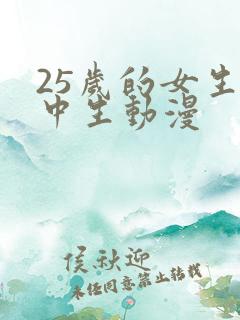 25歲的女生
中生動漫
侯秋迎
未经同意禁止转载